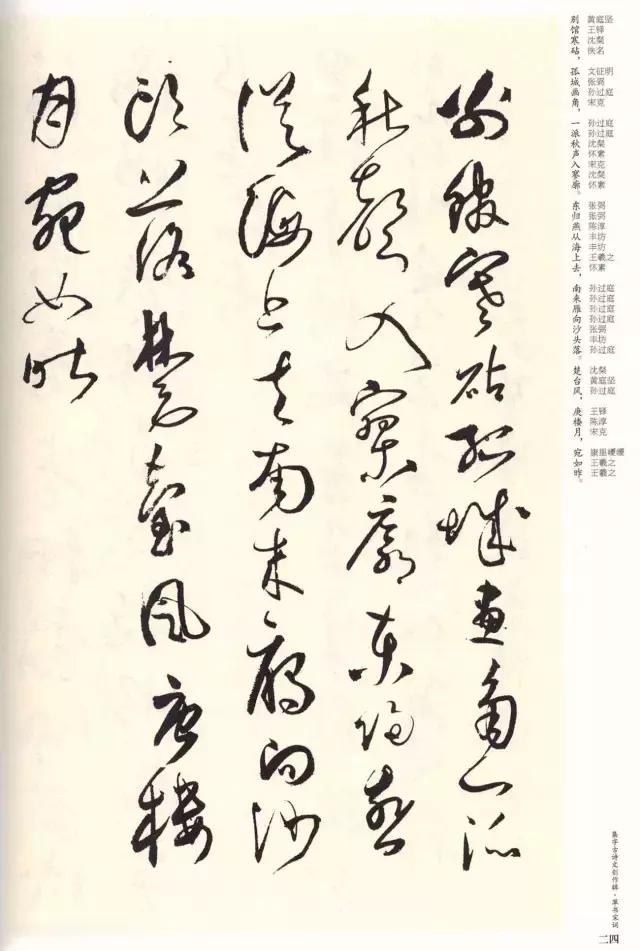 別館寒砧孤城畫角一派
秋聲入寥廓東歸燕
從海上去南來雁向沙
頭落楚臺風庾樓
月宛如昨
别馆寒砧，孤城画角，一派秋声入寥廓。东归燕从海上去，南来雁向沙头落。楚台风，庾楼月，宛如昨。
黄庭坚
王铎
沈粲
佚名
文征明
张弼
孙过庭
宋克
孙过庭
孙过庭
沈粲
怀素
宋克
沈粲
怀素
张弼
张弼
陈淳
丰坊
丰坊
王羲之
怀素
孙过庭
孙过庭
孙过庭
孙过庭
张弼
丰坊
孙过庭
沈粲
黄庭坚
孙过庭
王铎
陈淳
宋克
康里巎巎
王羲之
王羲之
集字古诗文创作辑·草书宋词
二四